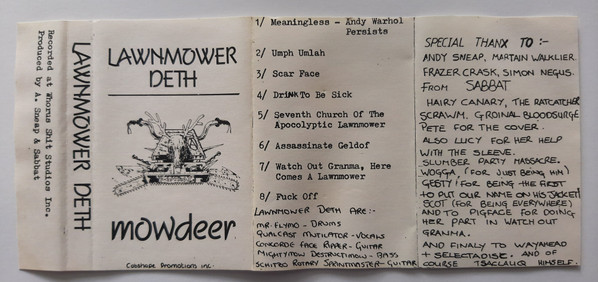 Recorded at Whorus Shit Studios Inc.
Produced by A. Sneap & Sabbat
LAWNMOWER DETH
LAWNMOWER
DETH
mowdeer
Casshape Promotions inc.
1/ Meaningless - Andy Warhol
Persists
2/ Umph Umlah
3/ Scar Face
4/ DRINK To Be Sick
5/ Seventh Church Of The
Apocolyptic Lawnmower
6/ Assassinate Geldof
7/ Watch Out Granma, Here
Comes A Lawnmower
8/ Fuck Off
LAWNMOWER DETH ARE:-
MR. FLYMO - DRUMS
QUALCAST MUTILATOR - VOCALS
CONCORDE FACE RIPPER - GUITAR
MIGHTYMOW DESTRUCTIMOW - BASS
SCHITED ROTARY SPRINTMASTER - GUITAR
SPECIAL THANX TO :-
ANDY SNEAP, MARTAIN WALKLIER
FRAZER CRASK, SIMON NEGUS.
FROM SABBAT
HAIRY CANARY, THE RATCATCHER
SCRAWM. CARDINAL BLOODSURGE
PETE FOR THE COVER.
ALSO LUCY FOR HER HELP
WITH THE SLEEVE.
SLUMBER PARTY MASSACRE.
WOGGA, (FOR JUST BEING HIM)
GESTY! FOR BEING THE FIRST
TO PUT OUR NAME ON HIS JACKET)
SCOT (FOR BEING EVERYWHERE)
AND TO PIGFACE FOR DOING
HER PART IN WATCH OUT
GRANMA.
AND FINALY TO WAYAHEAD
+ SELECTADISC. AND OF
COURSE TSACLAUQ HIMSELF.